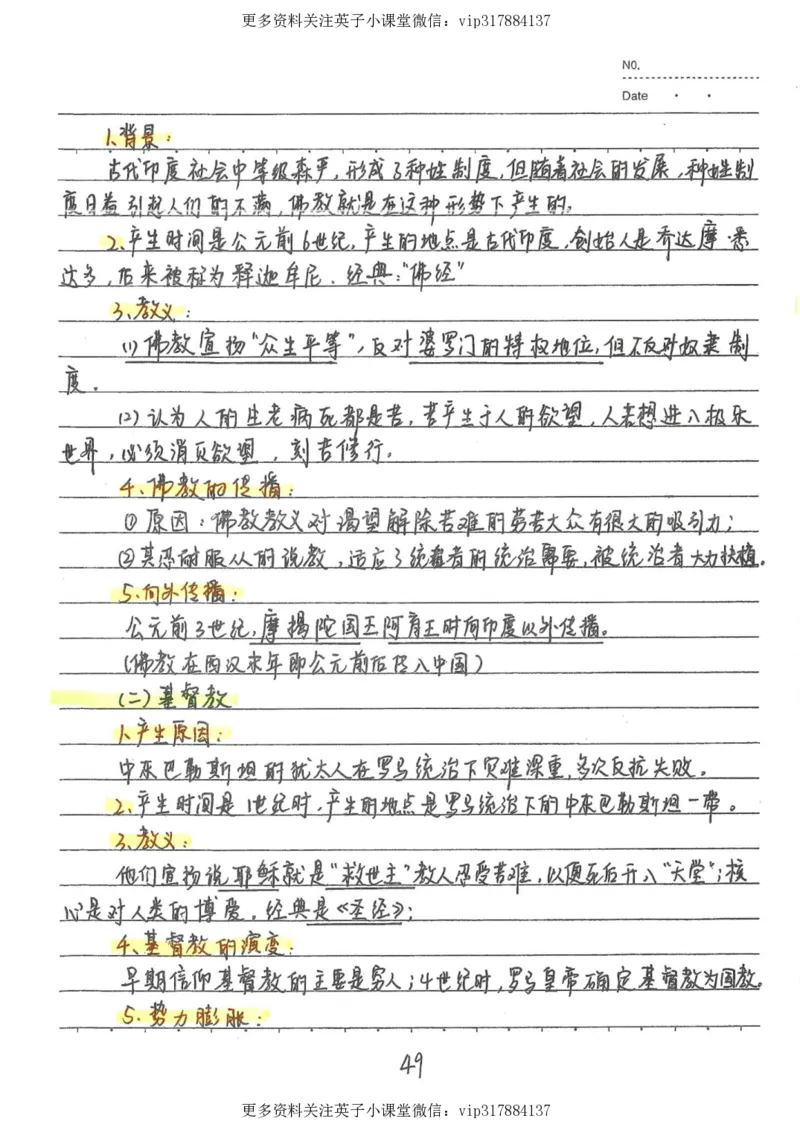 更多资料关注英子小课堂微信：vip317884137
NO.
Date
1、背景：
古代印度社会中等级森严，形成了种姓制度，但随着社会的发展，种姓制
度日益引起人们的不满，佛教就是在这种形势下产生的。
2、产生时间是公元前6世纪，产生的地点是古代印度，创始人是乔达摩·悉
达多，后来被称为释迦牟尼．经典：“佛经”
3、教义：
(1)佛教宣扬“众生平等”，反对婆罗门的特权地位，但不反对奴隶制
度．
(2)认为人的生老病死都是苦，苦产生于人的欲望，人若想进入极乐
世界，必须消灭欲望，刻苦修行．
4、佛教的传播：
①原因：佛教教义对渴望解除苦难的劳苦大众有很大的吸引力；
②其忍耐服从的说教，适应了统治者的统治需要，被统治者大力扶植。
5.向外传播：
公元前3世纪，摩揭陀国王阿育王时向印度以外传播。
(佛教在西汉末年即公元前后传入中国)
(二)基督教
1、产生原因：
中东巴勒斯坦的犹太人在罗马统治下灾难深重，多次反抗失败。
2、产生时间是1世纪时，产生的地点是罗马统治下的中东巴勒斯坦一带。
3、教义：
他们宣扬说耶稣就是“救世主”教人忍受苦难，以便死后升入“天堂”；核
心是对人类的博爱，经典是《圣经》；
4、基督教的演变：
早期信仰基督教的主要是穷人；4世纪时，罗马皇帝确定基督教为国教。
5、势力膨胀：
49
更多资料关注英子小课堂微信：vip317884137